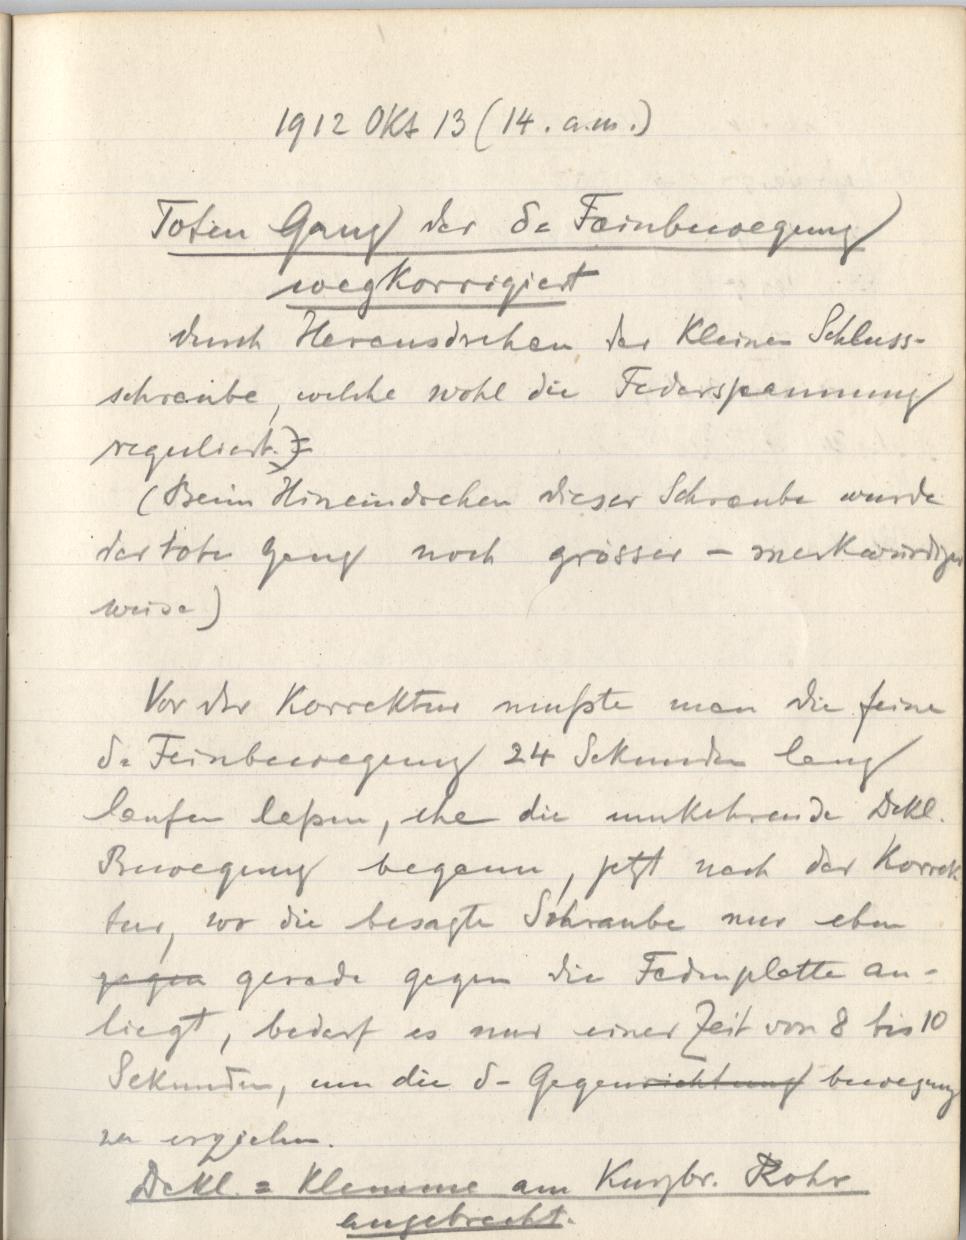 1912 Okt 13 (14. a.m.)
Toten Gang der δ= Feinbewegung
wegkorrigiert
durch Herausdrehen der kleinen Schluss-
schraube, welche wohl die Federspannung
reguliert.
(Beim Hineindrehen dieser Schraube wurde
der tote Gang noch grösser – merkwürdiger
weise)
Vor der Korrektur mußte man die feine
δ= Feinbewegung 24 Sekunden lang
laufen laßen, ehe die umkehrende Dekl.
Bewegung begann, jetzt nach der Korrek
tur, wo die besagte Schraube nur eben
gegen gerade gegen die Federplatte an-
liegt, bedarf es nur einer Zeit von 8 bis 10
Sekunden, um die δ- Gegenrichtung bewegung
zu erziehen.
Dekl. = Klemme am Kurzbr. Rohr
angebracht.